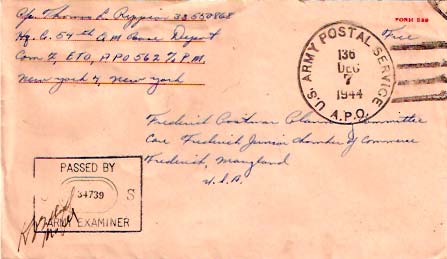 Cpl. Thomas L. 33550868
Hq. Co. 54th Q M Base Depot
Com Z, ETO, APO 562 % P.M.
New York 4, New York
FORM 539
Free
U.S. ARMY POSTAL SERVICE
136
DEC
7
1944
A.P.O.
Frederick Postwar Planning Committee
Care Frederick Junior Chamber of Commerce
Frederick, Maryland
U.S.A.
PASSED BY
34739
S
ARMY EXAMINER